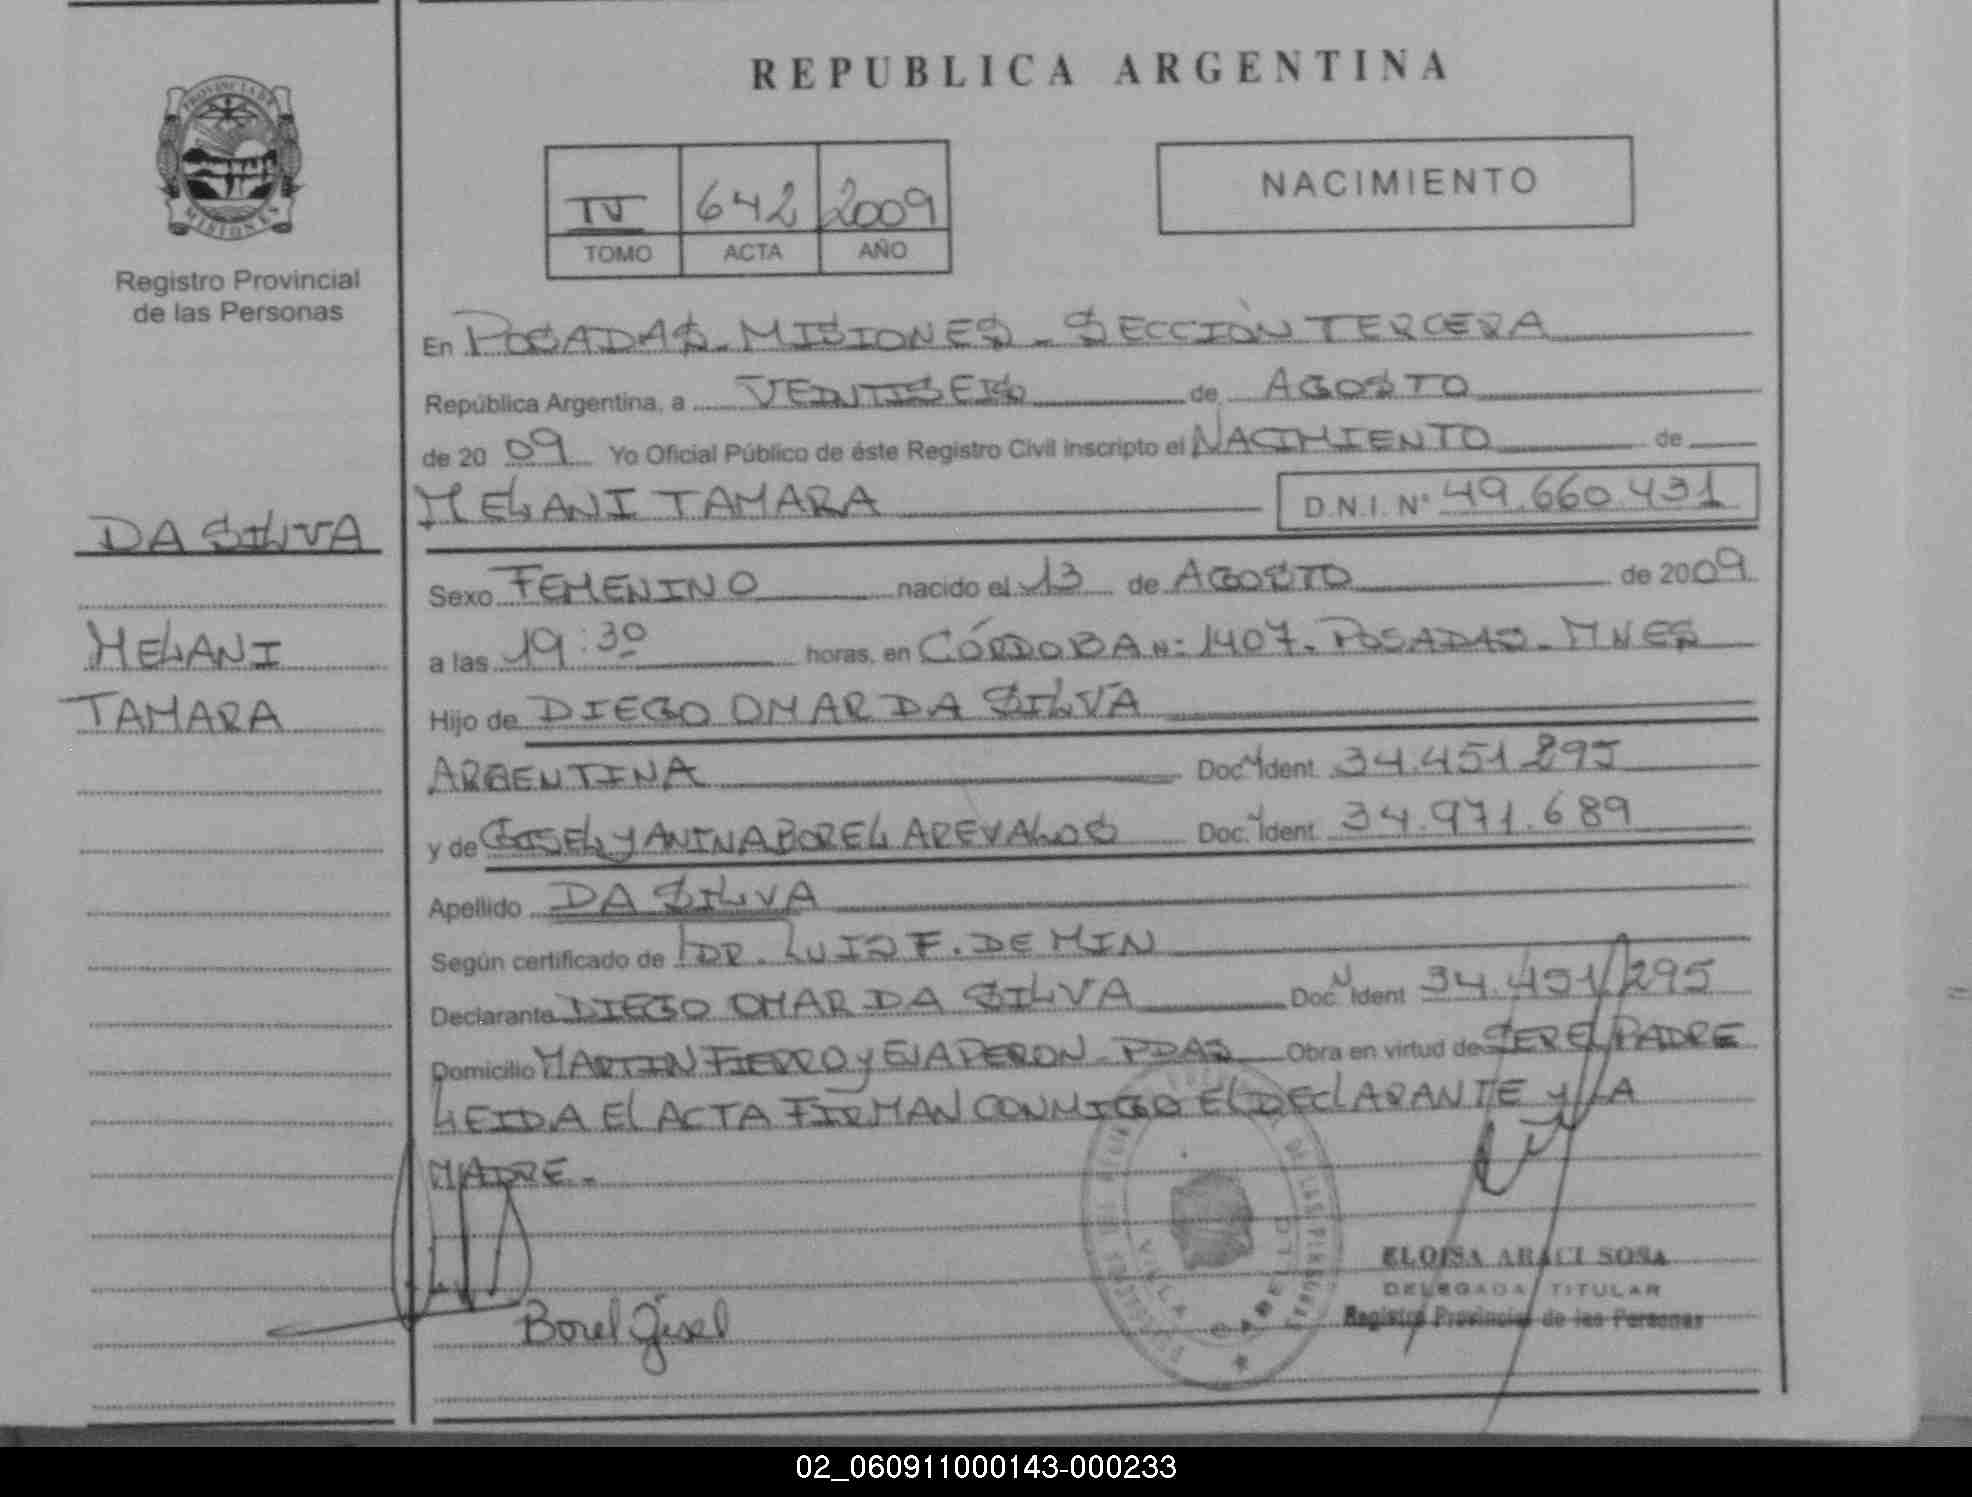 REPUBLICA ARGENTINA
PROVINCIA DE
MISIONES
Registro Provincial
de las Personas
IV 642 2009
TOMO ACTA AÑO
NACIMIENTO
En POSADAS - MISIONES - SECCIÓN TERCERA
República Argentina, a VEINTISEIS de AGOSTO
de 2009 Yo Oficial Público de éste Registro Civil inscripto el NACIMIENTO de
MELANI TAMARA D.N.I. Nº 49.660.431
DA SILVA
MELANI
TAMARA
Sexo FEMENINO nacido el 13 de AGOSTO de 2009
a las 19:30 horas, en CÓRDOBA Nº: 1407. POSADAS - MNES
Hijo de DIEGO OMAR DA SILVA
ARGENTINA Doc. Ident. 34.451.295
y de GISEL YANINA BOREL AREVALOS Doc. Ident. 34.971.689
Apellido DA SILVA
Según certificado de DR. LUIS F. DE MIN
Declarante DIEGO OMAR DA SILVA Doc. Ident 34.451.295
Domicilio MARTIN FIERRO y EVA PERON - PDAS Obra en virtud de SER EL PADRE
LEIDA El ACTA FIRMAN CONMIGO El DEClARANTE y LA
MADRE.-
Borel Gisel
ELOISA ARACI SOSA
DELEGADA TITULAR
Registro Provincial de las Personas
02_060911000143-000233